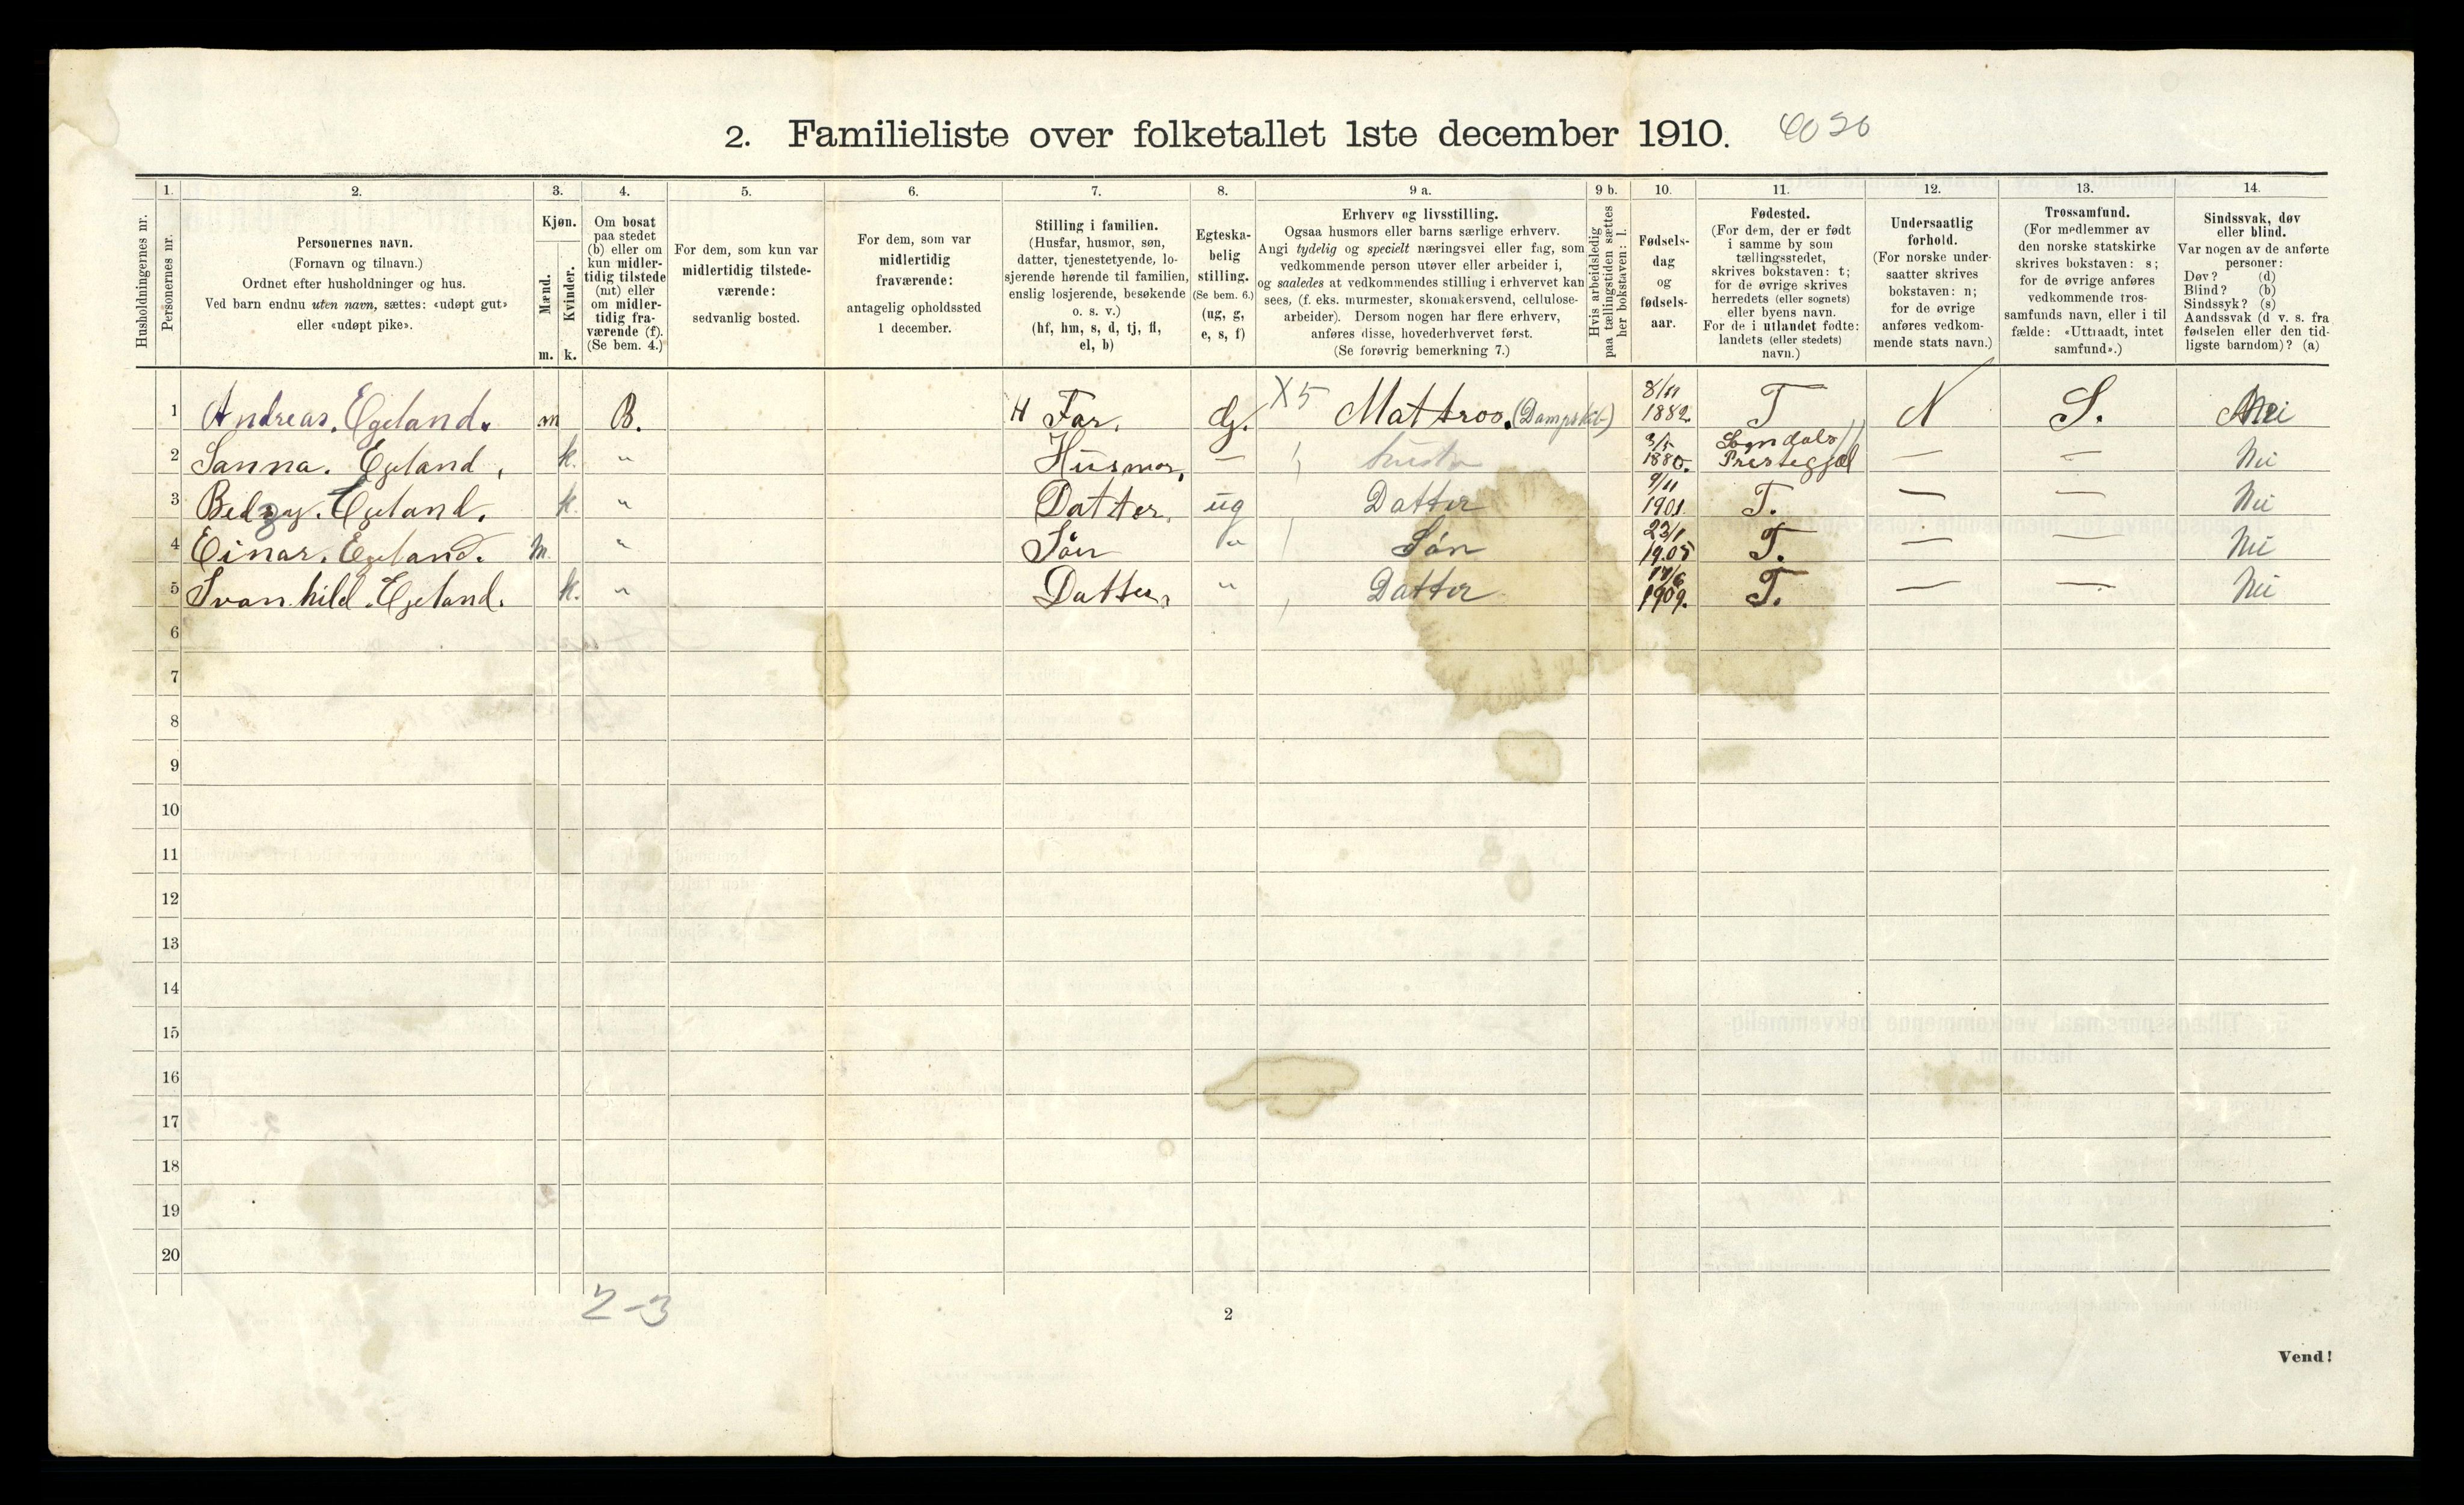 2. Familieliste over folketallet 1ste december 1910.
1. 2. 3. 4. 5. 6. 7. 8. 9 a. 9 b. 10. 11. 12. 13. 14.
Husholdningernes nr.
Personernes nr.
Personernes navn.
(Fornavn og tilnavn.)
Ordnet efter husholdninger og hus.
Ved barn endnu uten navn, sættes: «udøpt gut»
eller «udøpt pike».
Kjøn.
Mænd.
Kvinder.
m. k.
Om bosat
paa stedet
(b) eller om
kun midler-
tidig tilstede
(mt) eller
om midler-
tidig fra-
værende (f).
(Se bem. 4.)
For dem, som kun var
midlertidig tilstede-
værende:
sedvanlig bosted.
For dem, som var
midlertidig
fraværende:
antagelig opholdssted
1 december.
Stilling i familien.
(Husfar, husmor, søn,
datter, tjenestetyende, lo-
sjerende hørende til familien,
enslig losjerende, besøkende
o. s. v.)
(hf, hm, s, d, tj, fl,
el, b)
Egteska-
belig
stilling.
(Se bem. 6.)
(ug, g,
e, s, f)
Erhverv og livsstilling.
Ogsaa husmors eller barns særlige erhverv.
Angi tydelig og specielt næringsvei eller fag, som
vedkommende person utøver eller arbeider i,
og saaledes at vedkommendes stilling i erhvervet kan
sees, (f. eks. murmester, skomakersvend, cellulose-
arbeider). Dersom nogen har flere erhverv,
anføres disse, hovederhvervet først.
(Se forøvrig bemerkning 7.)
Hvis arbeidsledig
paa tællingstiden sættes
her bokstaven: l.
Fødsels-
dag
og
fødsels-
aar.
Fødested.
(For dem, der er født
i samme by som
tællingsstedet,
skrives bokstaven: t;
for de øvrige skrives
herredets (eller sognets)
eller byens navn.
For de i utlandet fødte:
landets (eller stedets)
navn.)
Undersaatlig
forhold.
(For norske under-
saatter skrives
bokstaven: n;
for de øvrige
anføres vedkom-
mende stats navn.)
Trossamfund.
(For medlemmer av
den norske statskirke
skrives bokstaven: s;
for de øvrige anføres
vedkommende tros-
samfunds navn, eller i til
fælde: «Uttraadt, intet
samfund».)
Sindssvak, døv
eller blind.
Var nogen av de anførte
personer:
Døv? (d)
Blind? (b)
Sindssyk? (s)
Aandssvak (d v. s. fra
fødselen eller den tid-
ligste barndom)? (a)
1 Andreas. Egeland. m B. H Far. G. X5 Mattros. (Dampskib) 8/11 1882. T N S. Nei
2 Sanna. Egeland, k. " Husmor, — 3/5 1880. Sogndals Prestegjel — — Nei
3 Betzy. Egeland. k. " Datter, ug Datter 9/11 1901. T. — — Nei
4 Einar. Egeland. M. " Sön " Sön 23/1 1905 T. — — Nei
5 Svanhild. Egeland. k. " Datter, " Datter 17/6 1909. T. — — Nei
6
7
8
9
10
11
12
13
14
15
16
17
18
19
20
2-3
2
Vend!